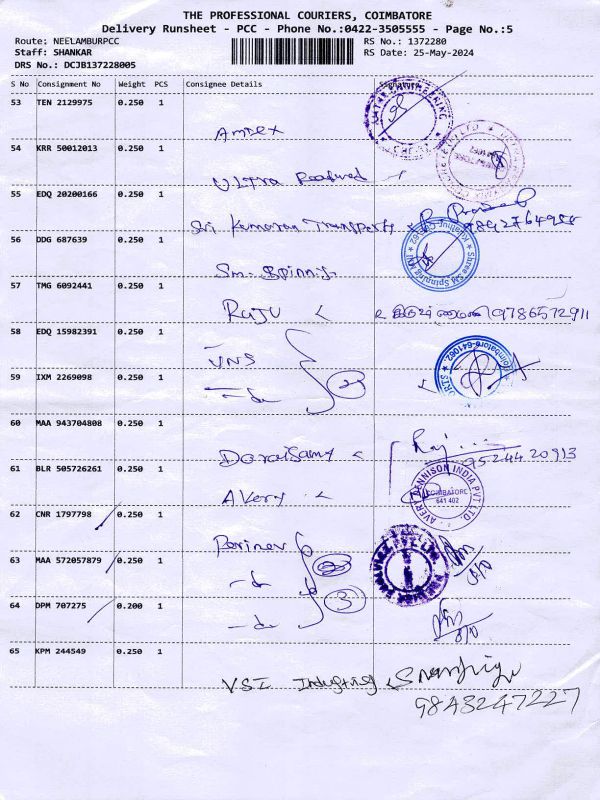 THE PROFESSIONAL COURIERS, COIMBATORE
Delivery Runsheet - PCC - Phone No.:0422-3505555 - Page No.:5
Route: NEELAMBURPCC
RS No.: 1372280
Staff: SHANKAR
RS Date: 25-May-2024
DRS No.: DCJB137228005
S No Consignment No Weight PCS Consignee Details
53 TEN 2129975 0.250 1
Amdex
54 KRR 50012013 0.250 1
Ultra
55 EDQ 20200166 0.250 1
Sri Kumaran Transports
56 DDG 687639 0.250 1
Sm. Spinning
57 TMG 6092441 0.250 1
Raju 9786572911
58 EDQ 15982391 0.250 1
VNS
59 IXM 2269098 0.250 1
-do 2
60 MAA 943704808 0.250 1
Doraisamy
7524420913
61 BLR 505726261 0.250 1
Avery
AVERY DENNISON INDIA PVT LTD
COIMBATORE
641 402
62 CNR 1797798 0.250 1
63 MAA 572057879 0.250 1
-do
64 DPM 707275 0.200 1
-do 3
65 KPM 244549 0.250 1
VSI
9843247227